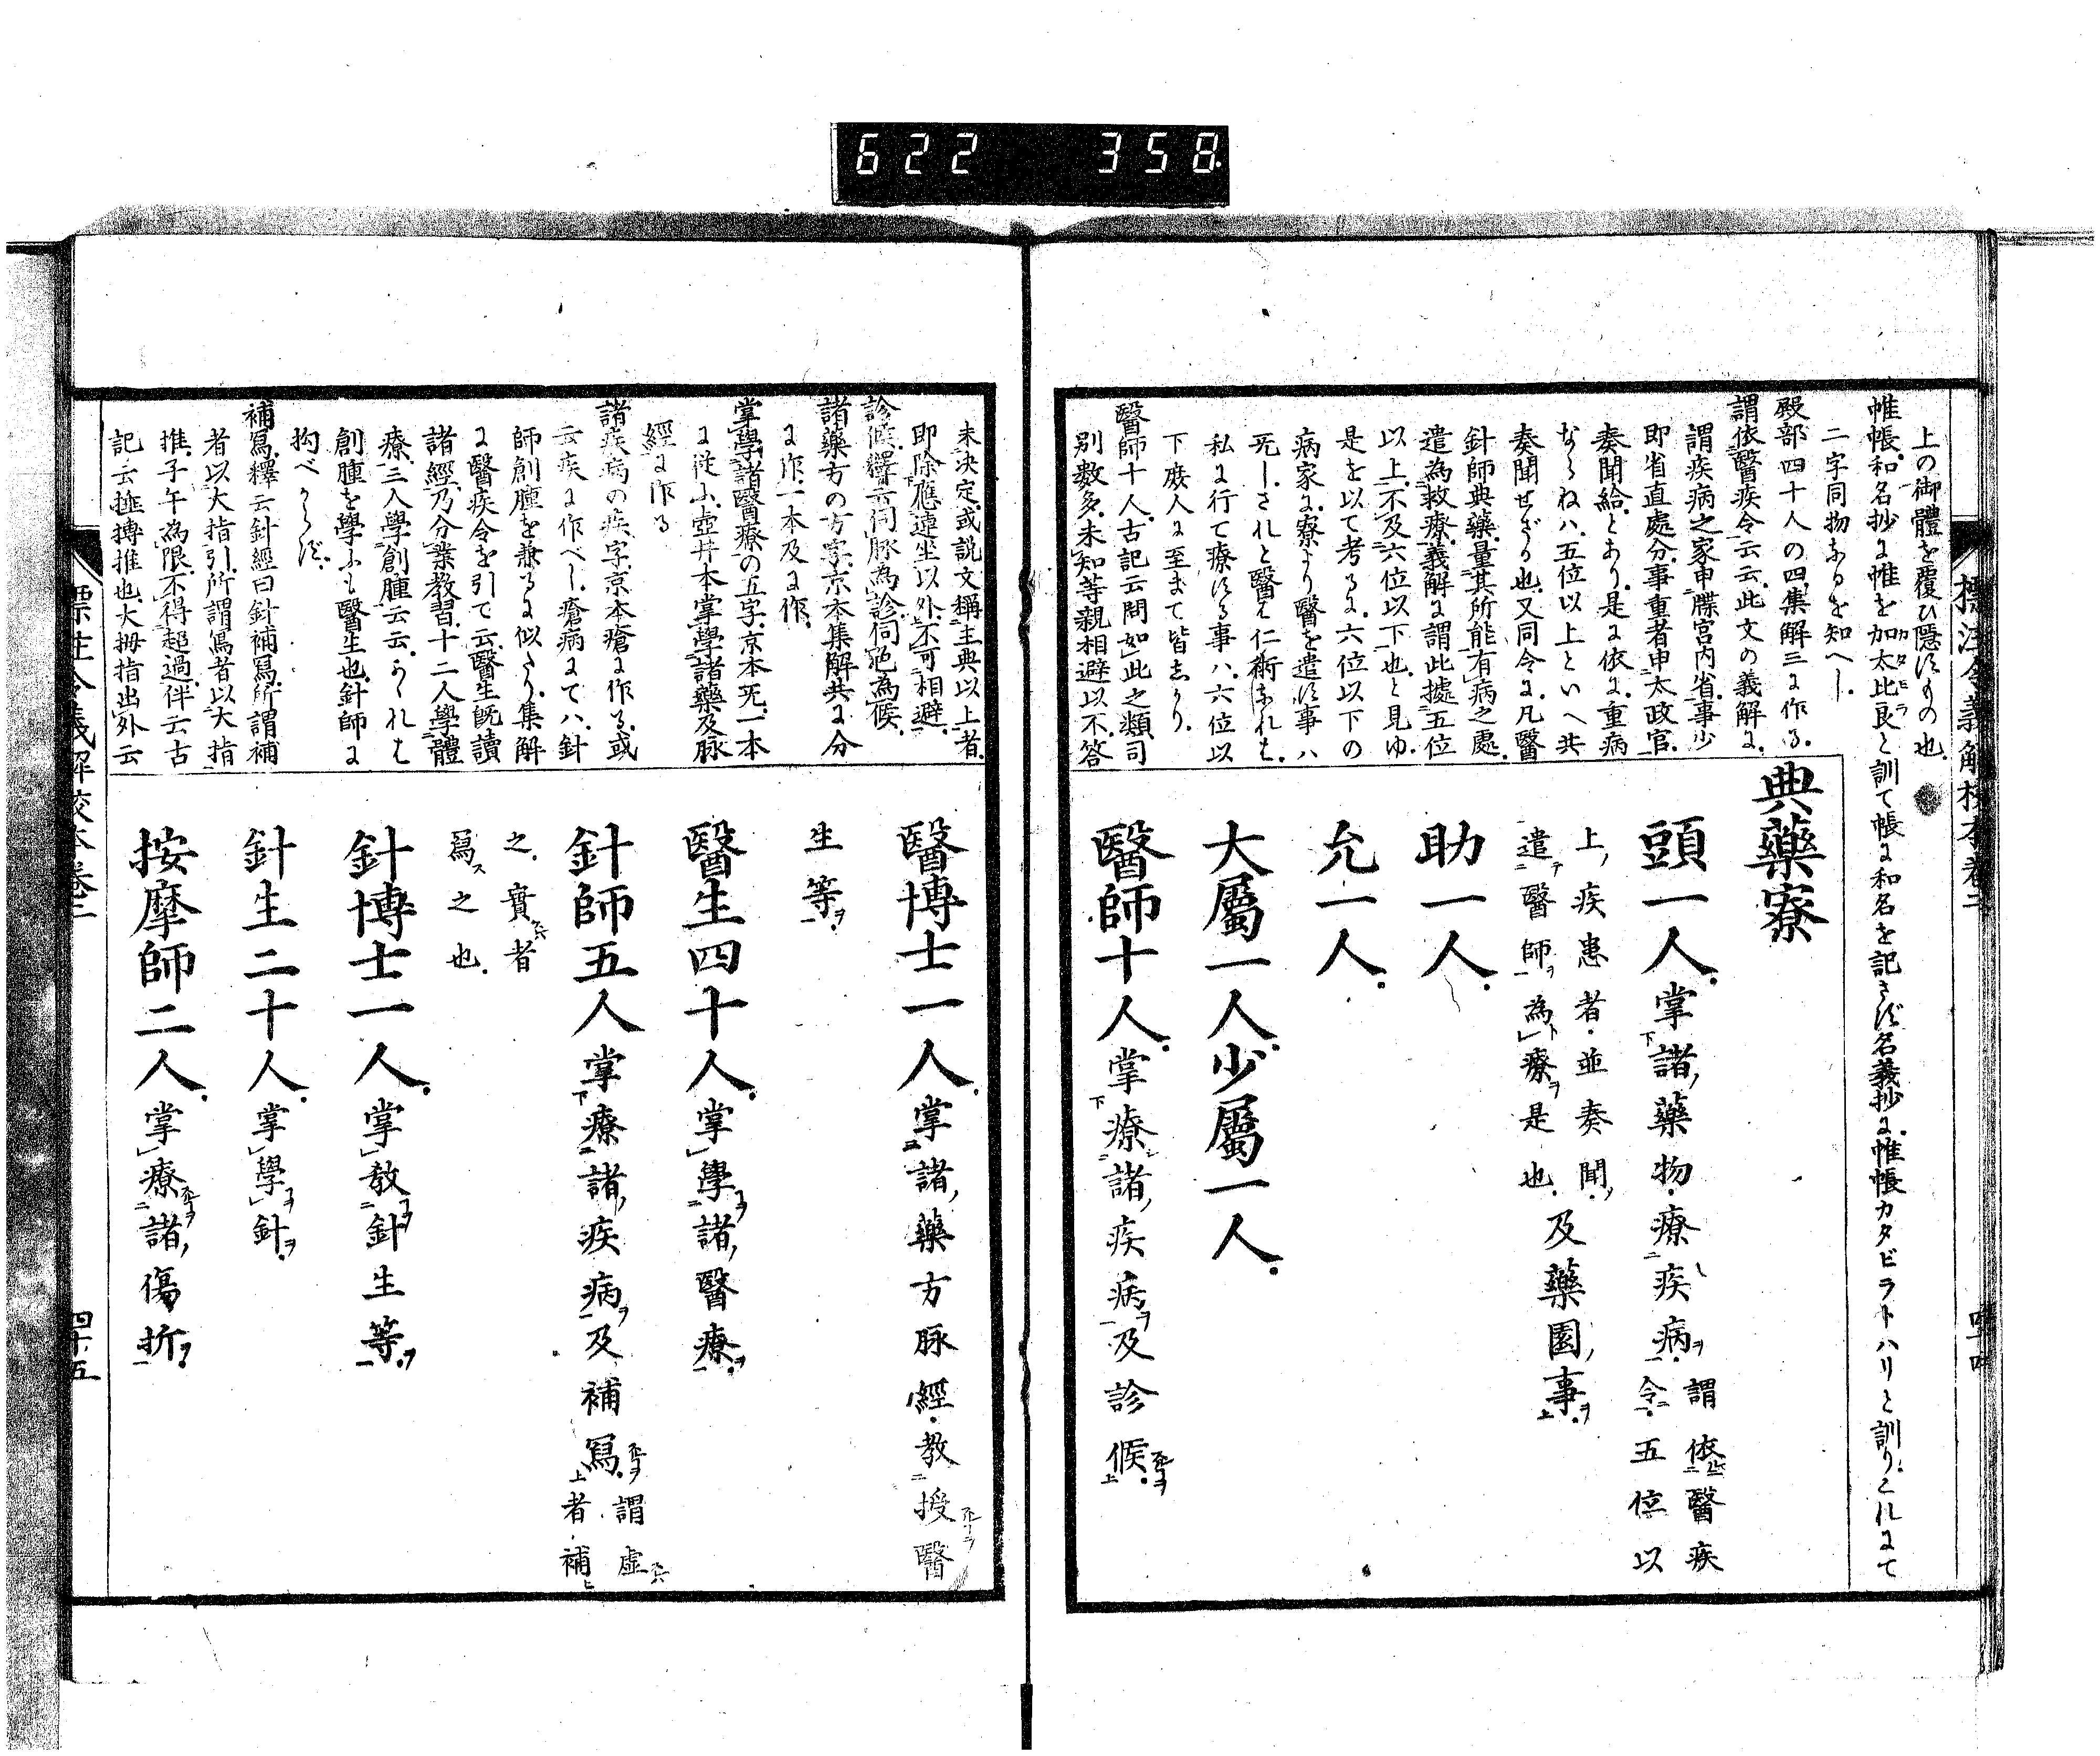 622 358
標注令義解校本卷二
四十四
上の御體を覆ひ隱すもの也
帷帳和名抄に帷を加太比良と訓て帳に和名を記さず名義抄に帷帳カタビラトハリと訓りこれにて
二字同物なるを知へし
殿部四十人の四集解三に作る
謂依醫疾令云云此文の義解に
謂疾病之家申牒宮内省事少
即省直處分事重者申太政官
奏聞給とあり是に依に重病
ならねハ五位以上といへ共
奏聞せざる也又同令に凡醫
針師典藥量其所能有病之處
遣為救療義解に謂此據五位
以上不及六位以下也と見ゆ
是を以て考るに六位以下の
病家に寮より醫を遣す事ハ
旡しされと醫は仁術なれは
私に行て療する事ハ六位以
下庶人に至まて皆志かり
醫師十人古記云問如此之類司
別数多未知等親相避以不答
典藥寮
頭一人掌諸藥物療疾病謂依醫疾
令五位以
上疾患者並奏聞
遣醫師為療是也及藥園事
助一人
允一人
大屬一人少屬一人
醫師十人掌療諸疾病及診候
未決定或説文稱主典以上者
即除應連坐以外不可相避
診候釋云伺脉為診伺色為候
諸藥方の方字京本集解共に分
に作一本及に作
掌學諸醫療の五字京本旡一本
に從ふ壺井本掌學諸藥及脉
經に作る
諸疾病の疾字京本瘡に作る或
云疾に作べし瘡病にてハ針
師創腫を兼るに似たり集解
に醫疾令を引て云醫生既讀
諸經乃分業教習十二人學體
療三人學創腫云云かくれは
創腫を學ふも醫生也針師に
拘べからず
補寫釋云針經曰針補寫所謂補
者以大指引所謂寫者以大指
推子午為限不得超過伴云古
記云搋摶推也大拇指出外云
醫博士一人掌諸藥方脉經教授醫
生等
醫生四十人掌學諸醫療
針師五人掌療諸疾病及補寫謂虚
者補
之實者
寫之也
針博士一人掌教針生等
針生二十人掌學針
按摩師二人掌療諸傷折
標注令義解校本卷二
四十五